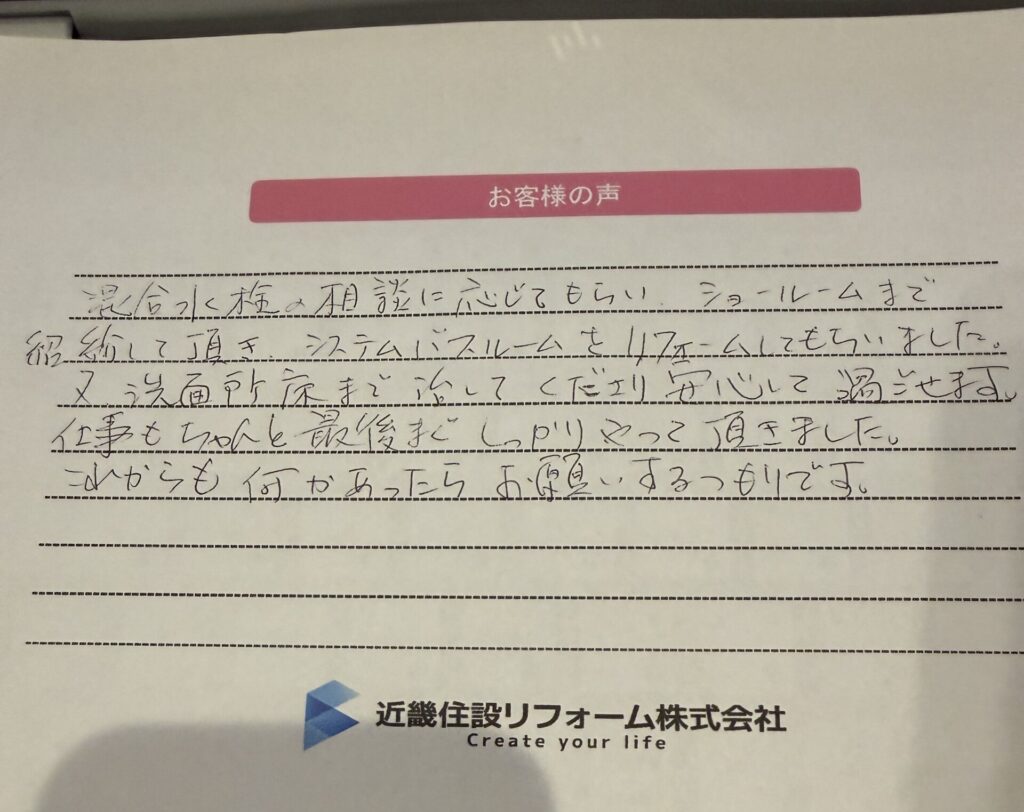 お客様の声
混合水栓の相談に応じてもらい、ショールームまで
紹介して頂き、システムバスルームをリフォームしてもらいました。
又、洗面所床まで治してくださり安心して過ごせます。
仕事もちゃんと最後までしっかりやって頂きました。
これからも何かあったらお願いするつもりです。
近畿住設リフォーム株式会社
Create your life